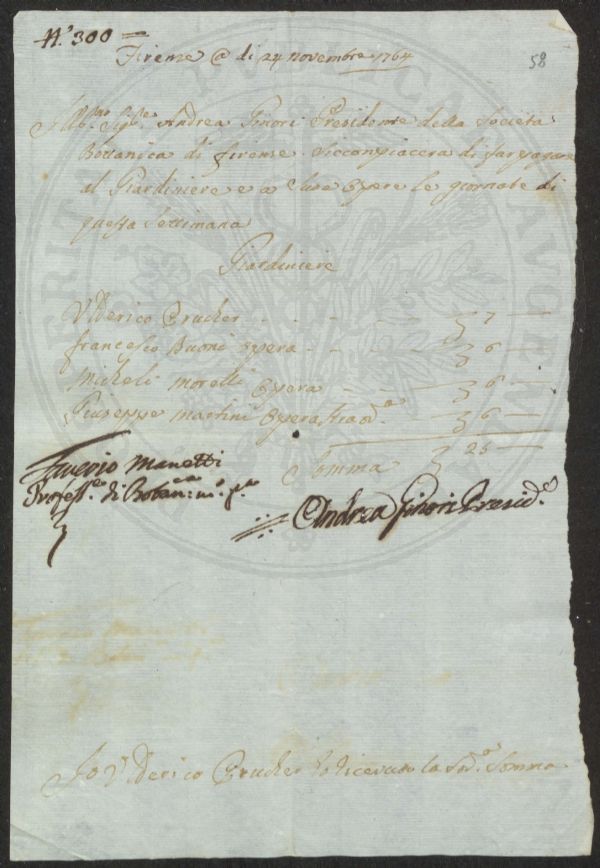 N.° 300
58
Firenze @ di 24 novembre 1764
Ill.mo Sig.re Andrea Ginori Presidente della Società
Bottanica di firenze Si compiacerà di far pagare
al Giardiniere e a Sue Opere le giornate di
questa Settimana
Giardiniere
Vlderico Prucher 7
francesco Buoni Opera 6
Micheli Moretti Opera 6
Giuseppe Martini Opera 6
Somma 25
Saverio Manetti
Profess.e di Botan.ca
Andrea Ginori Presid.e
Io Vlderico Prucher ò ricevuto la Sud.a Somma